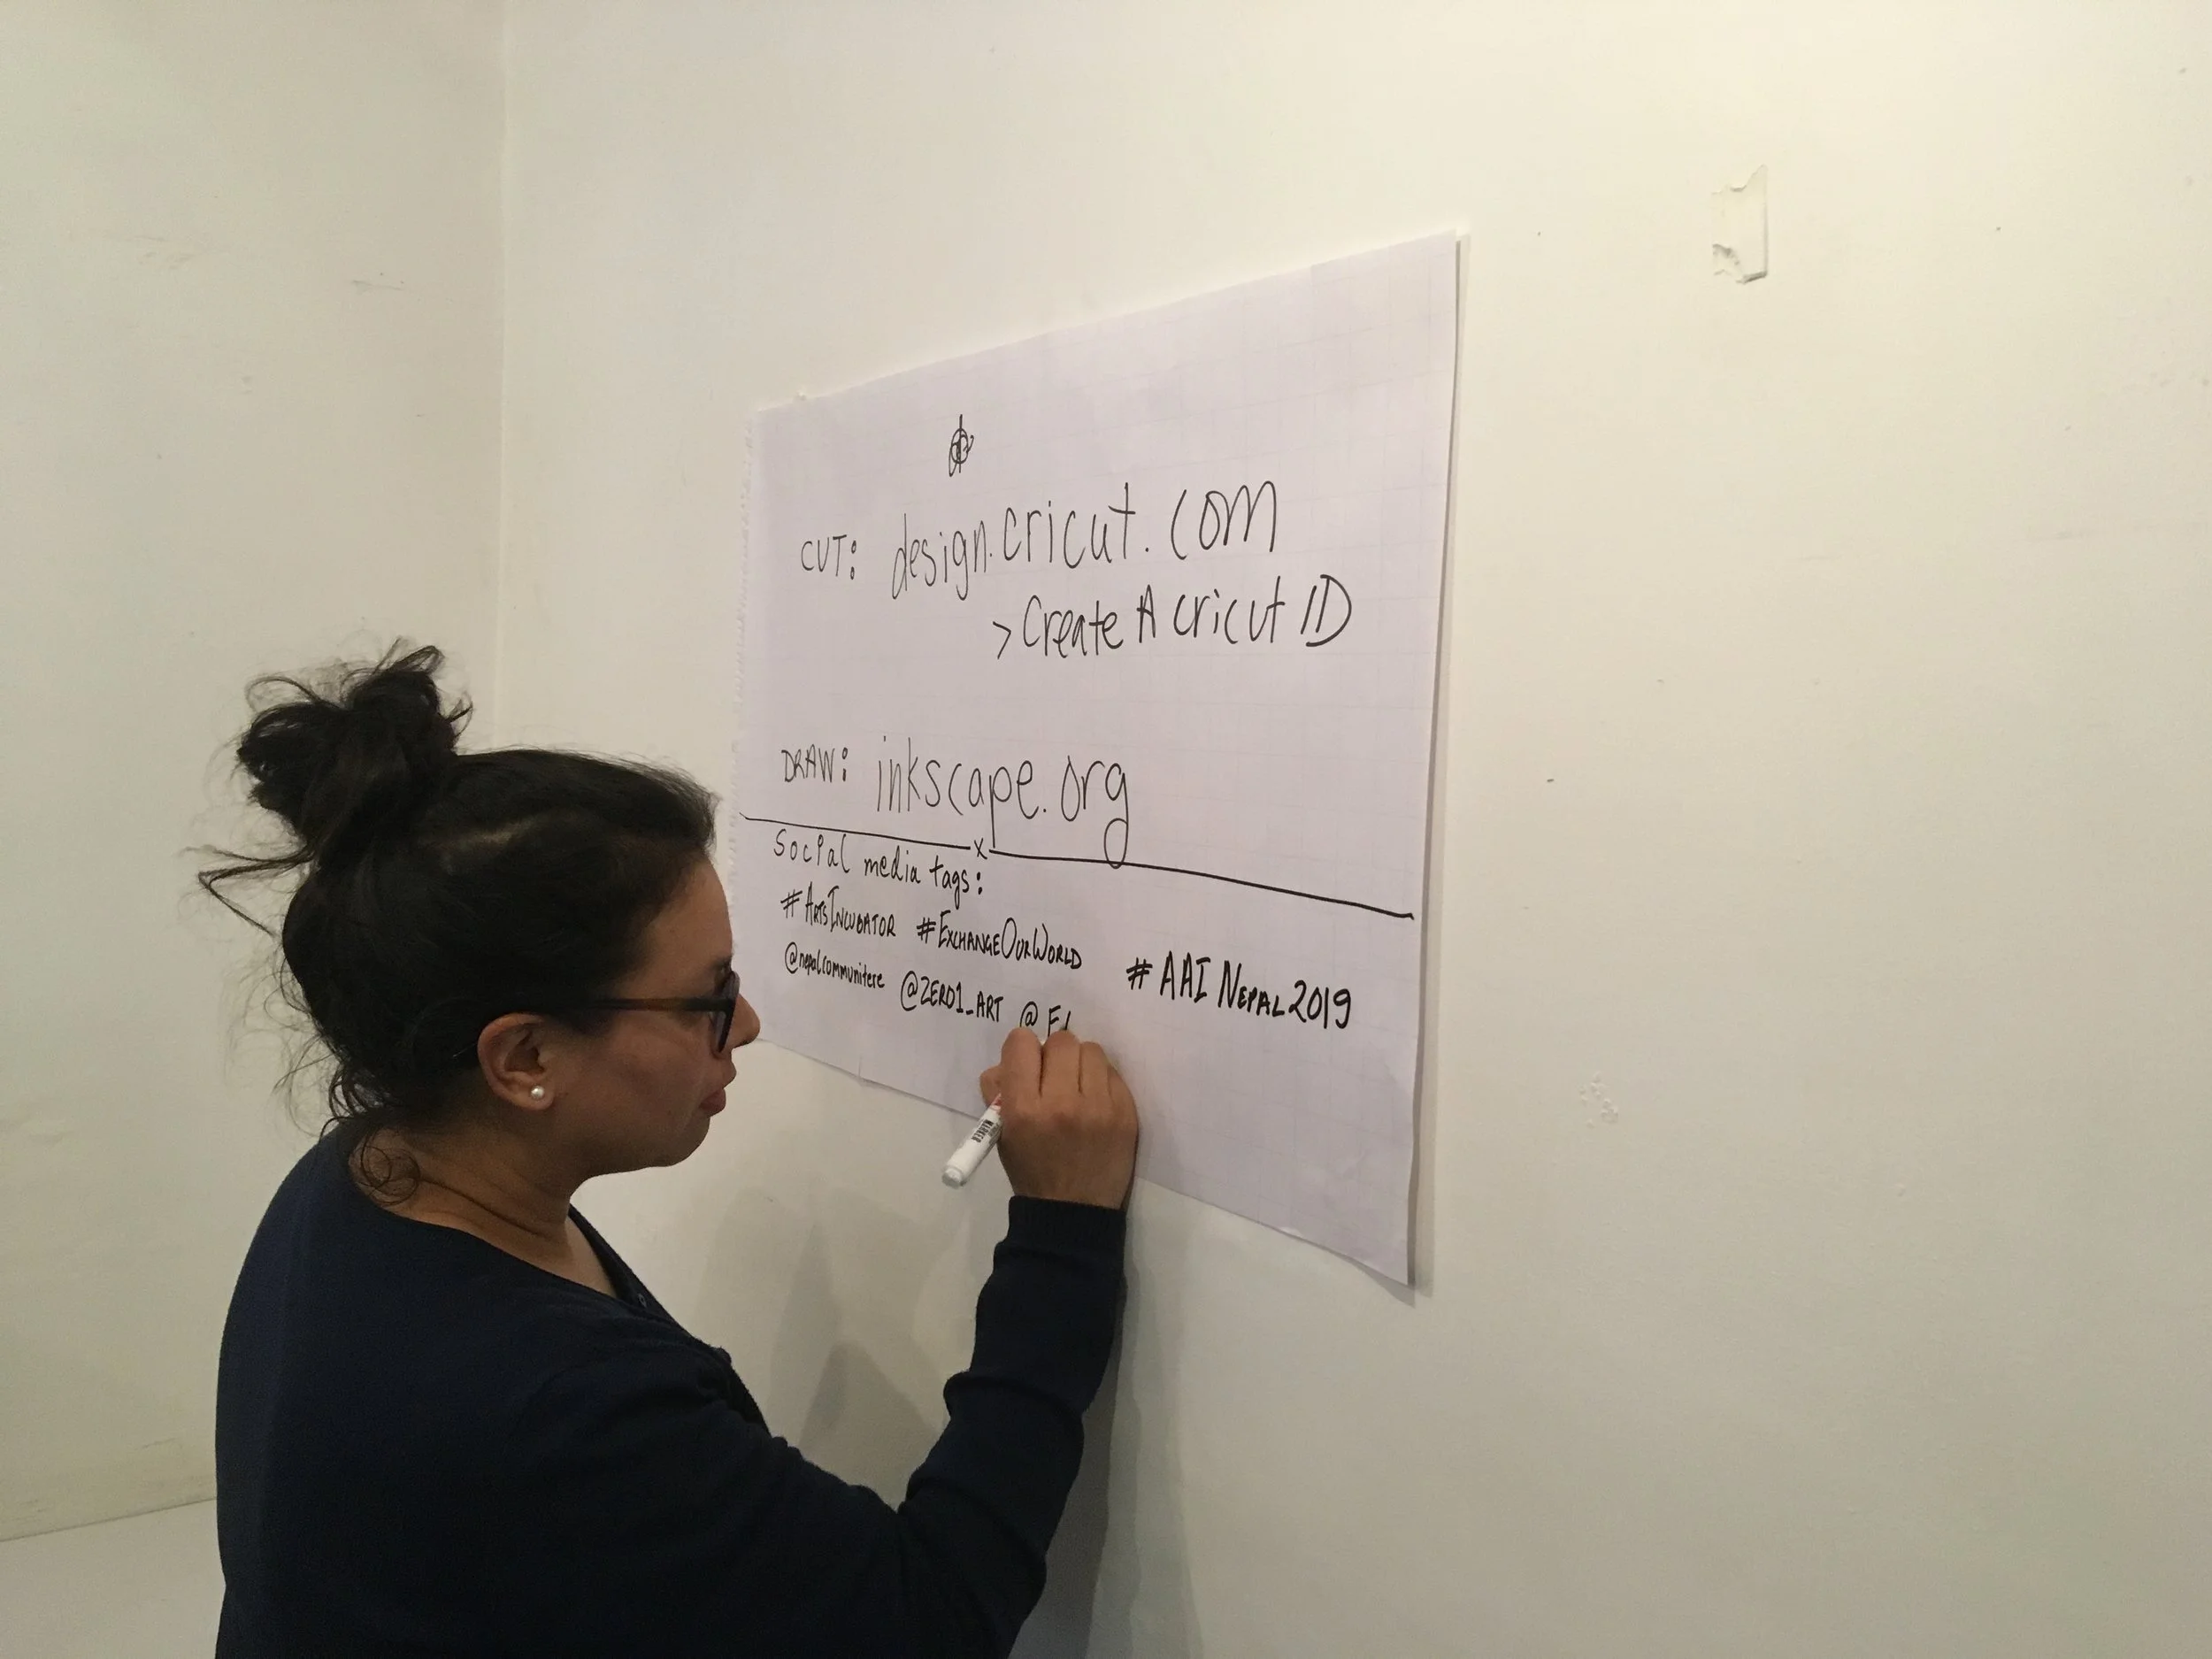 CUT: design.cricut.com
> Create A cricut ID
DRAW: inkscape.org
x
Social media tags:
#ArtsIncubator #ExchangeOurWorld
#AAI Nepal2019
@nepalcommunitere @ZERO1_ART @
MARKER